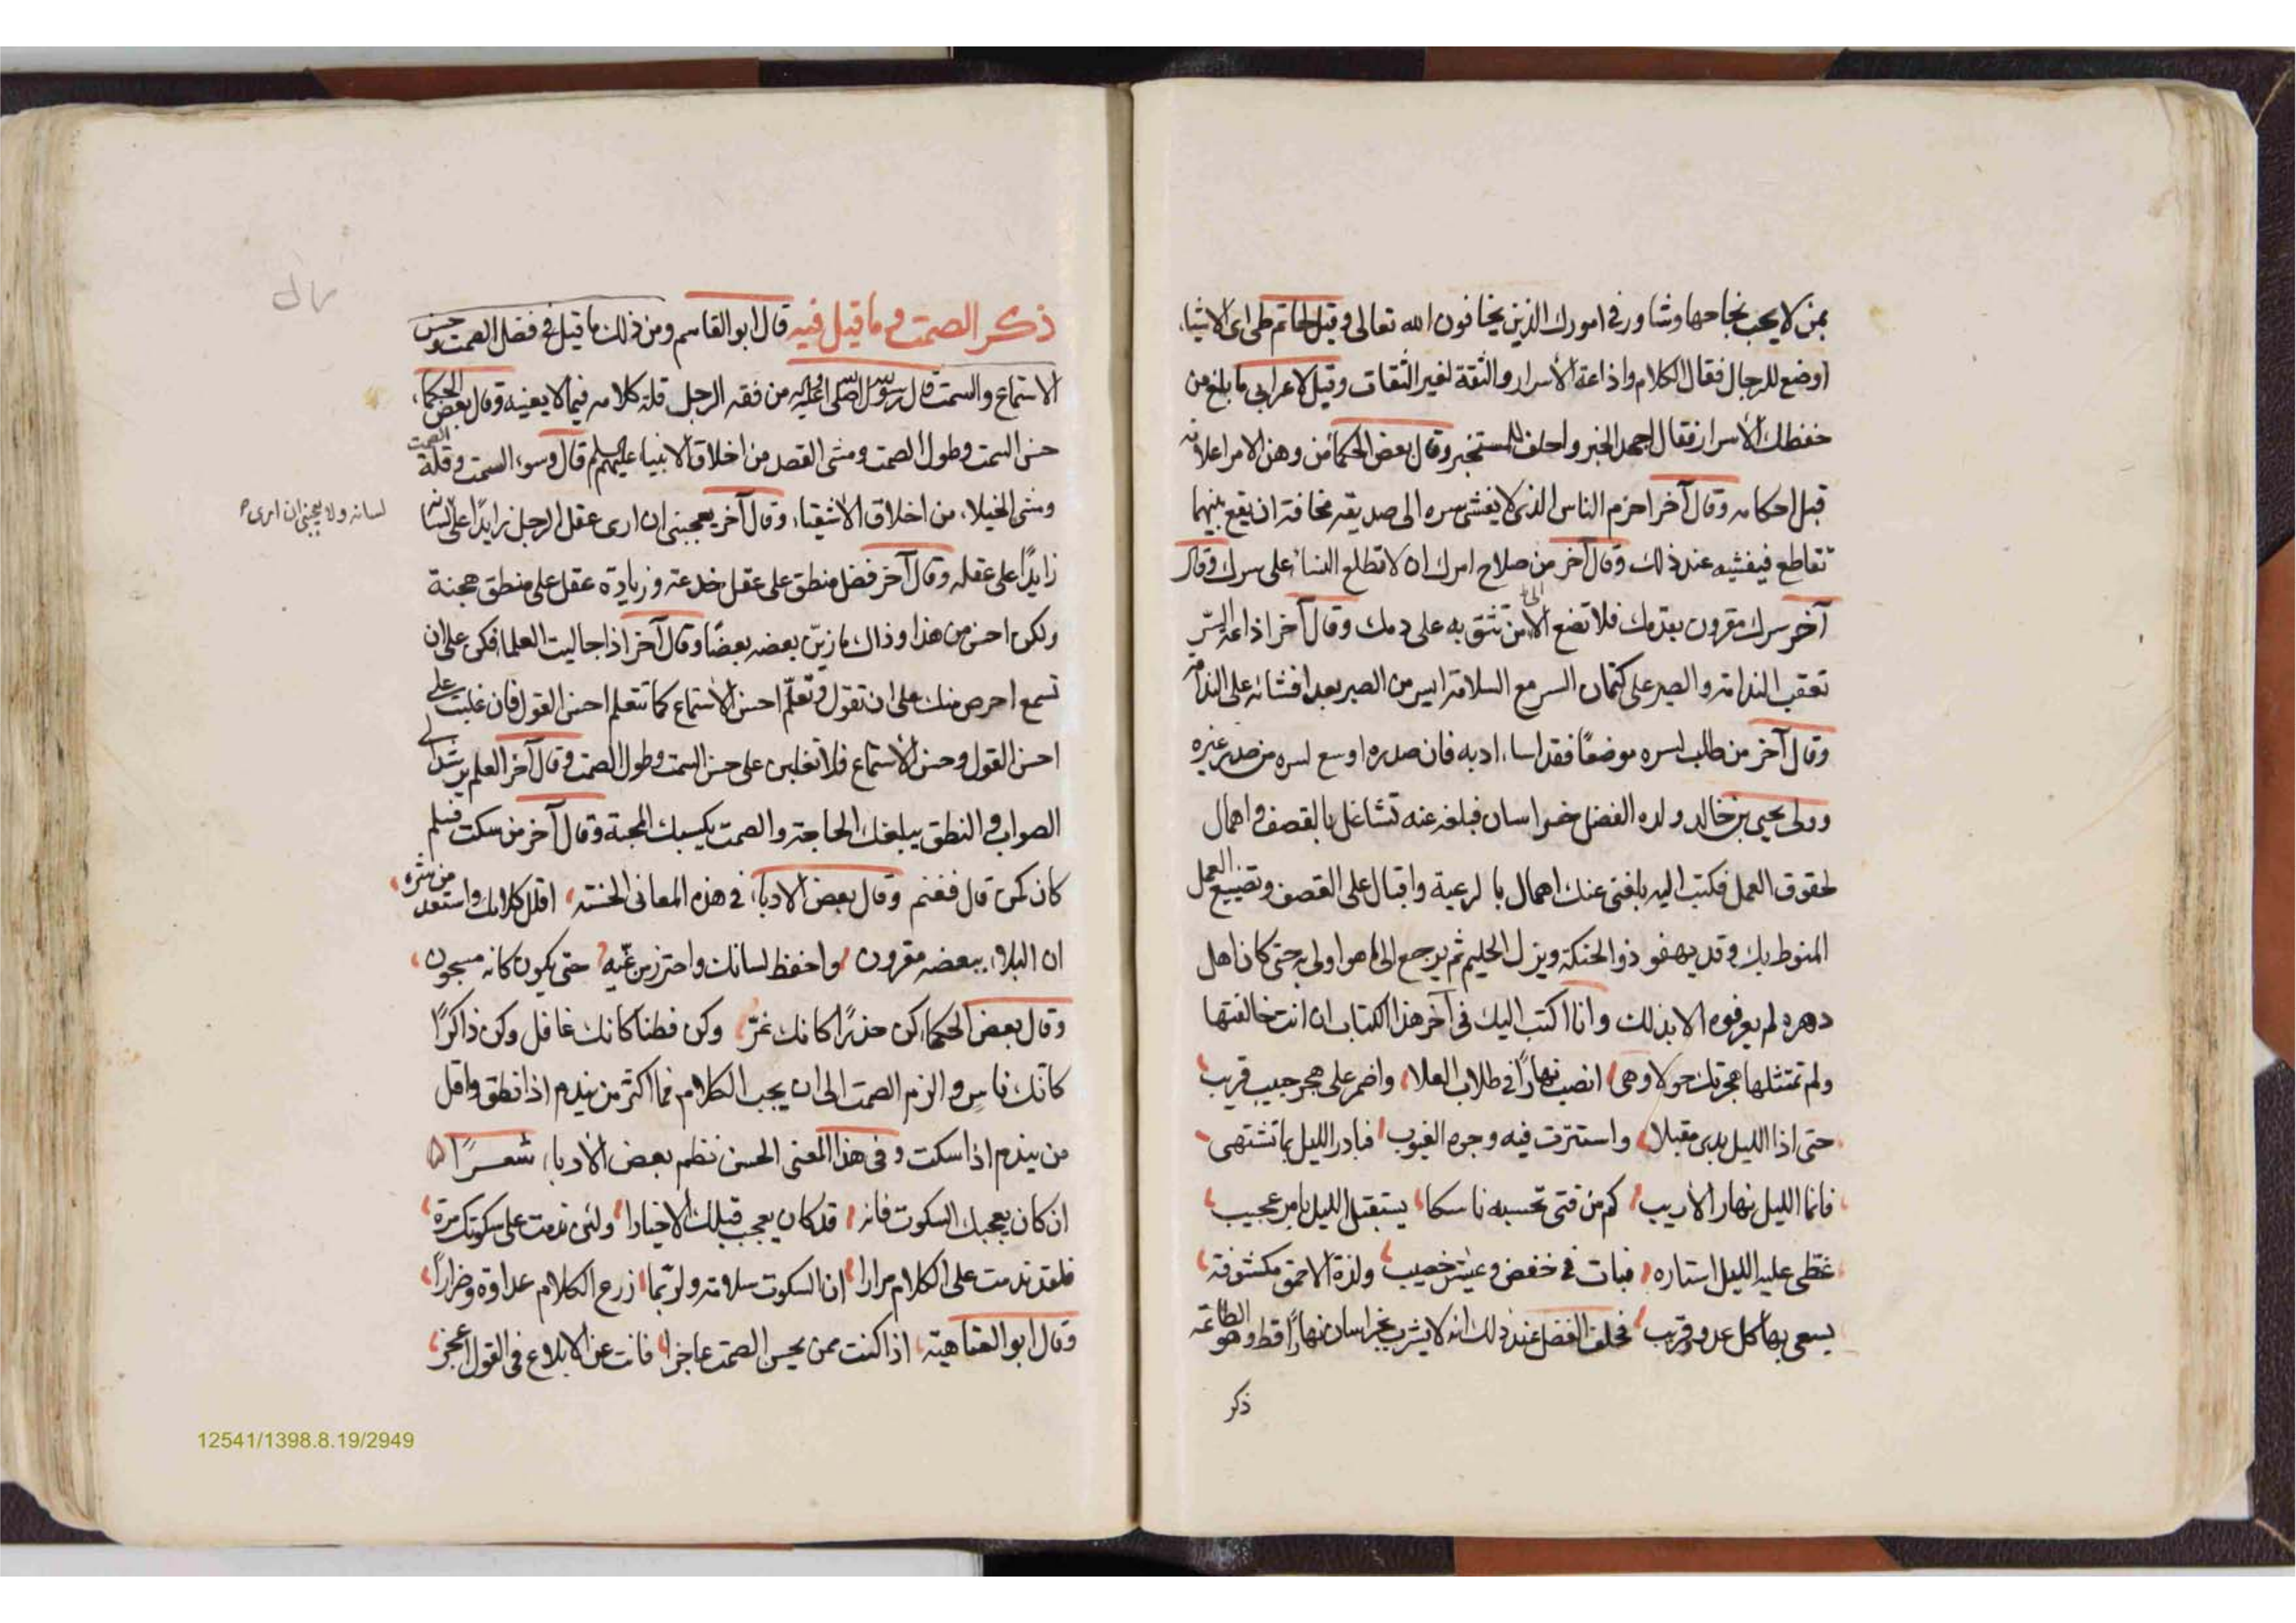 بمن لا يحب نجاحها وشاور في امورك الذين يخافون الله تعالى وقيل لحاتم طي اي الاشياء
اوضع للرجال فقال الكلام واذاعة الأسرار والثقة لغير الثقات وقيل لاعرابي ما بلغ من
حفظك الأسرار فقال اجحد الخبر واحلف للمستخبر وقال بعض الحكما من وهن الامر اعلانه
قبل احكامه وقال آخر احزم الناس الذي لا يفشي سره الى صديقه مخافة ان يقع بينهما
تقاطع فيفشيه عند ذلك وقال آخر من صلاح امرك ان لا تطلع النساء على سرك وقال
آخر سرك مقرون بدمك فلا تضع الا من تثق به على دمك وقال آخر اذاعة السّر
تعقب الندامة والصبر على كتمان السر مع السلامة ايسر من الصبر بعد افشائه على الندامة
وقال آخر من طلب لسره موضعًا فقد اساء ادبه فان صدره اوسع لسره من صدر غيره
وولى يحيى بن خالد ولده الفضل خراسان فبلغه عنه تشاغل بالقصف واهمال
لحقوق العمل فكتب اليه بلغني عنك اهمال بالرعية واقبال على القصف وتضييع العمل
المنوط بك وقد يهفو ذو الحنكة ويزل الحليم ثم يرجع الى ما هو اولى به حتى كان اهل
دهره لم يعرفوه الا بذلك وانا اكتب اليك في آخر هذا الكتاب ان انت خالفتها
ولم تمتثلها هجرتك حولا وهي انصب نهارًا في طلاب العلاء واضمر على هجر حبيب قريب
حتى اذا الليل بدى مقبلا واستترت فيه وجوه الغيوب فبادر الليل بما تشتهي
فانما الليل نهار الأريب كم من فتى تحسبه ناسكا يستقبل الليل بامر عجيب
غطى عليه الليل استاره فبات في خفض وعيش خصيب ولذة الاحمق مكشوفة
يسعى بها كل عدو قريب فحلف الفضل عند ذلك انه لا يشرب بخراسان نهارًا قط وهو الطاعة
ذكر
ذكر الصمت وما قيل فيه قال ابو القاسم ومن ذلك ما قيل في فضل الصمت وحسن
الاستماع والسمت قال رسول الله صلى الله عليه من فقه الرجل قلة كلامه فيما لا يعنيه وقال بعض الحكماء
حسن السمت وطول الصمت ومشي القصد من اخلاق الانبياء عليهم قال وسوء السمت وقلة الصمت
ومشي الخيلاء من اخلاق الاشقياء وقال آخر يعجبني ان ارى عقل الرجل زايدًا على لسانه
لسانه ولا يعجبني ان ارى
زايدًا على عقله وقال آخر فضل منطق على عقل خدعة وزيادة عقل على منطق هجنة
ولكن احسن من هذا وذاك ما زيّن بعضه بعضًا وقال آخر اذا جالست العلما فكن على ان
تسمع احرص منك على ان تقول وتعلّم احسن الأستماع كما تتعلم احسن القول فان غلبت على
احسن القول وحسن الأستماع فلا تغلبن على حسن السمت وطول الصمت وقال آخر العلم يرشدك الى
الصواب والنطق يبلغك الحاجة والصمت يكسبك المحبة وقال آخر من سكت فسلم
كان كمن قال فغنم وقال بعض الادباء في هذه المعاني الحسنة اقلل كلامك واستعذ من شره
ان البلاء ببعضه مقرون واحفظ لسانك واحترز من غيه حتى يكون كانه مسجون
وقال بعض الحكماء كن حذرًا كانك غرّ وكن فطنا كانك غافل وكن ذاكرًا
كانك ناسٍ والزم الصمت الى ان يجب الكلام فما اكثر من يندم اذا نطق واقل
من يندم اذا سكت وفي هذا المعنى الحسن نظم بعض الأدباء شعـرًا
ان كان يعجبك السكوت فانه قد كان يعجب قبلك الأخيارا ولئن ندمت على سكوتك مرة
فلقد ندمت على الكلام مرارا ان السكوت سلامة ولربّما زرع الكلام عداوة وضرارًا
وقال ابو العتاهية اذا كنت ممن يحسن الصمت عاجزا فانت عن الابلاغ في القول اعجز
12541/1398.8.19/2949